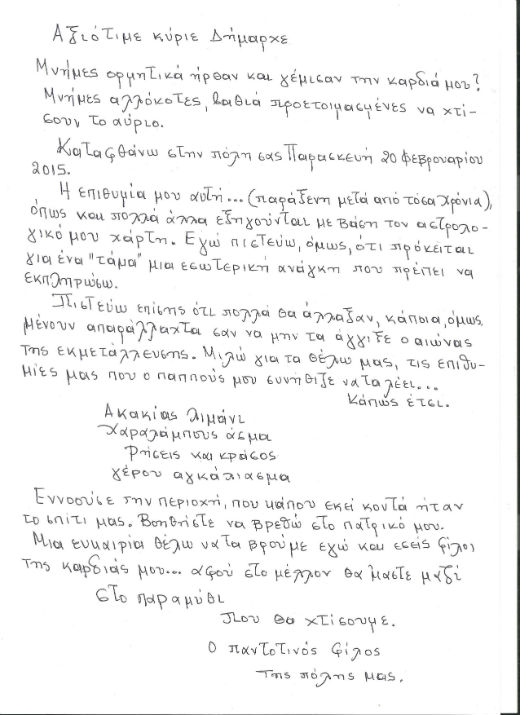 Αξιότιμε κύριε Δήμαρχε
Μνήμες ορμητικά ήρθαν και γέμισαν την καρδιά μου?
Μνήμες αλλόκοτες, βαθιά προετοιμασμένες να χτί-
σουν, το αύριο.
Καταφθάνω στην πόλη σας Παρασκευή 20 Φεβρουαρίου
2015.
Η επιθυμία μου αυτή... (παράξενη μετά από τόσα χρόνια),
όπως και πολλά άλλα εξηγούνται με βάση τον αστρολο-
γικό μου χάρτη. Εγώ πιστεύω, όμως, ότι πρόκειται
για ένα "τάμα" μια εσωτερική ανάγκη που πρέπει να
εκπληρώσω.
Πιστεύω επίσης ότι πολλά θα άλλαξαν, κάποια, όμως,
μένουν απαράλλαχτα σαν να μην τα άγγιξε ο αιώνας
της εκμετάλλευσης. Μιλώ για τα θέλω μας, τις επιθυ-
μίες μας που ο παππούς μου συνήθιζε να τα λέει...
Κάπως έτσι.
Ακακίας λιμάνι
Χαραλάμπους άσμα
Ρήσεις και κράσος
γέρου αγκάλιασμα
Εννοούσε την περιοχή, που κάπου εκεί κοντά ήταν
το σπίτι μας. Βοηθήστε να βρεθώ στο πατρικό μου.
Μια ευκαιρία θέλω να τα βρούμε εγώ και εσείς φίλοι
της καρδιάς μου... αφού στο μέλλον θα 'μαστε μαζί
στο παραμύθι
Που θα χτίσουμε.
Ο παντοτινός φίλος
της πόλης μας.